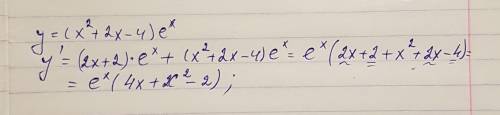 y = (x² + 2x - 4) eˣ
y' = (2x + 2) · eˣ + (x² + 2x - 4) eˣ = eˣ (2x + 2 + x² + 2x - 4) =
= eˣ (4x + x² - 2) ;